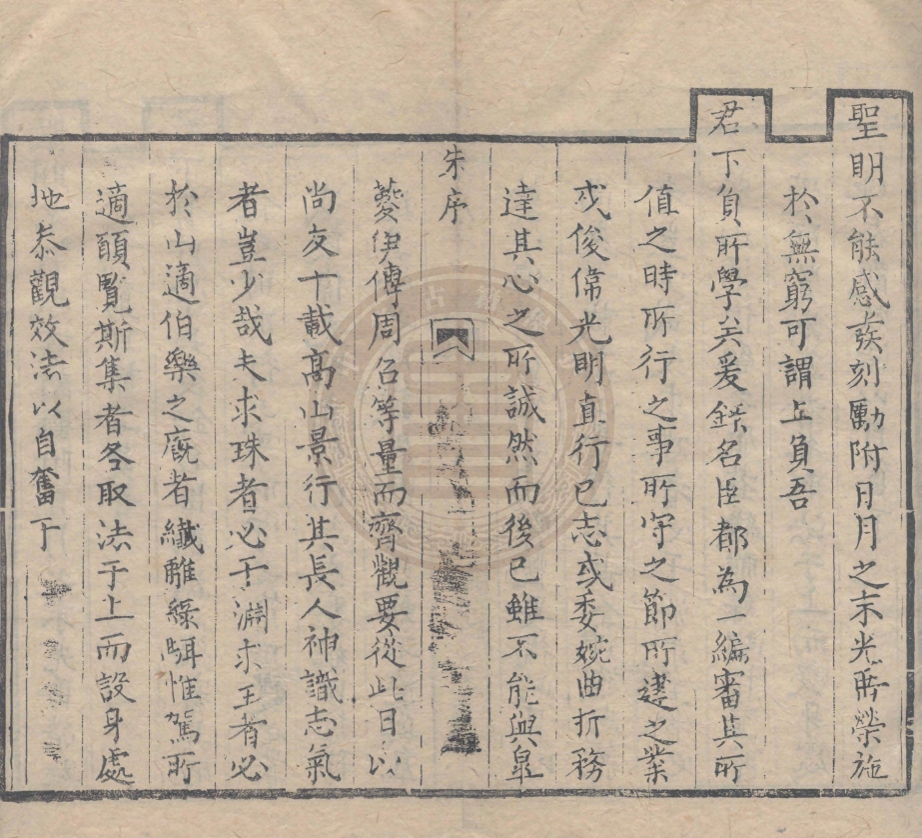 聖明不能感發刻勵附日月之末光所榮施
於無窮可謂上負吾
君下負所學矣爰錄名臣都為一編審其所
值之時所行之事所守之節所建之業
或俊偉光明直行已志或委婉曲折務
達其心之所誠然而後已雖不能與皐
朱序
夔伊傅周召等量而齊觀要從此日以
尚友十載高山景行其長人神識志氣
者豈少哉夫求珠者必于淵求玉者必
於山適伯樂之廐者纖離綠駬惟駕所
適頋覽斯集者各取法于上而設身處
地恭觀效法以自奮于